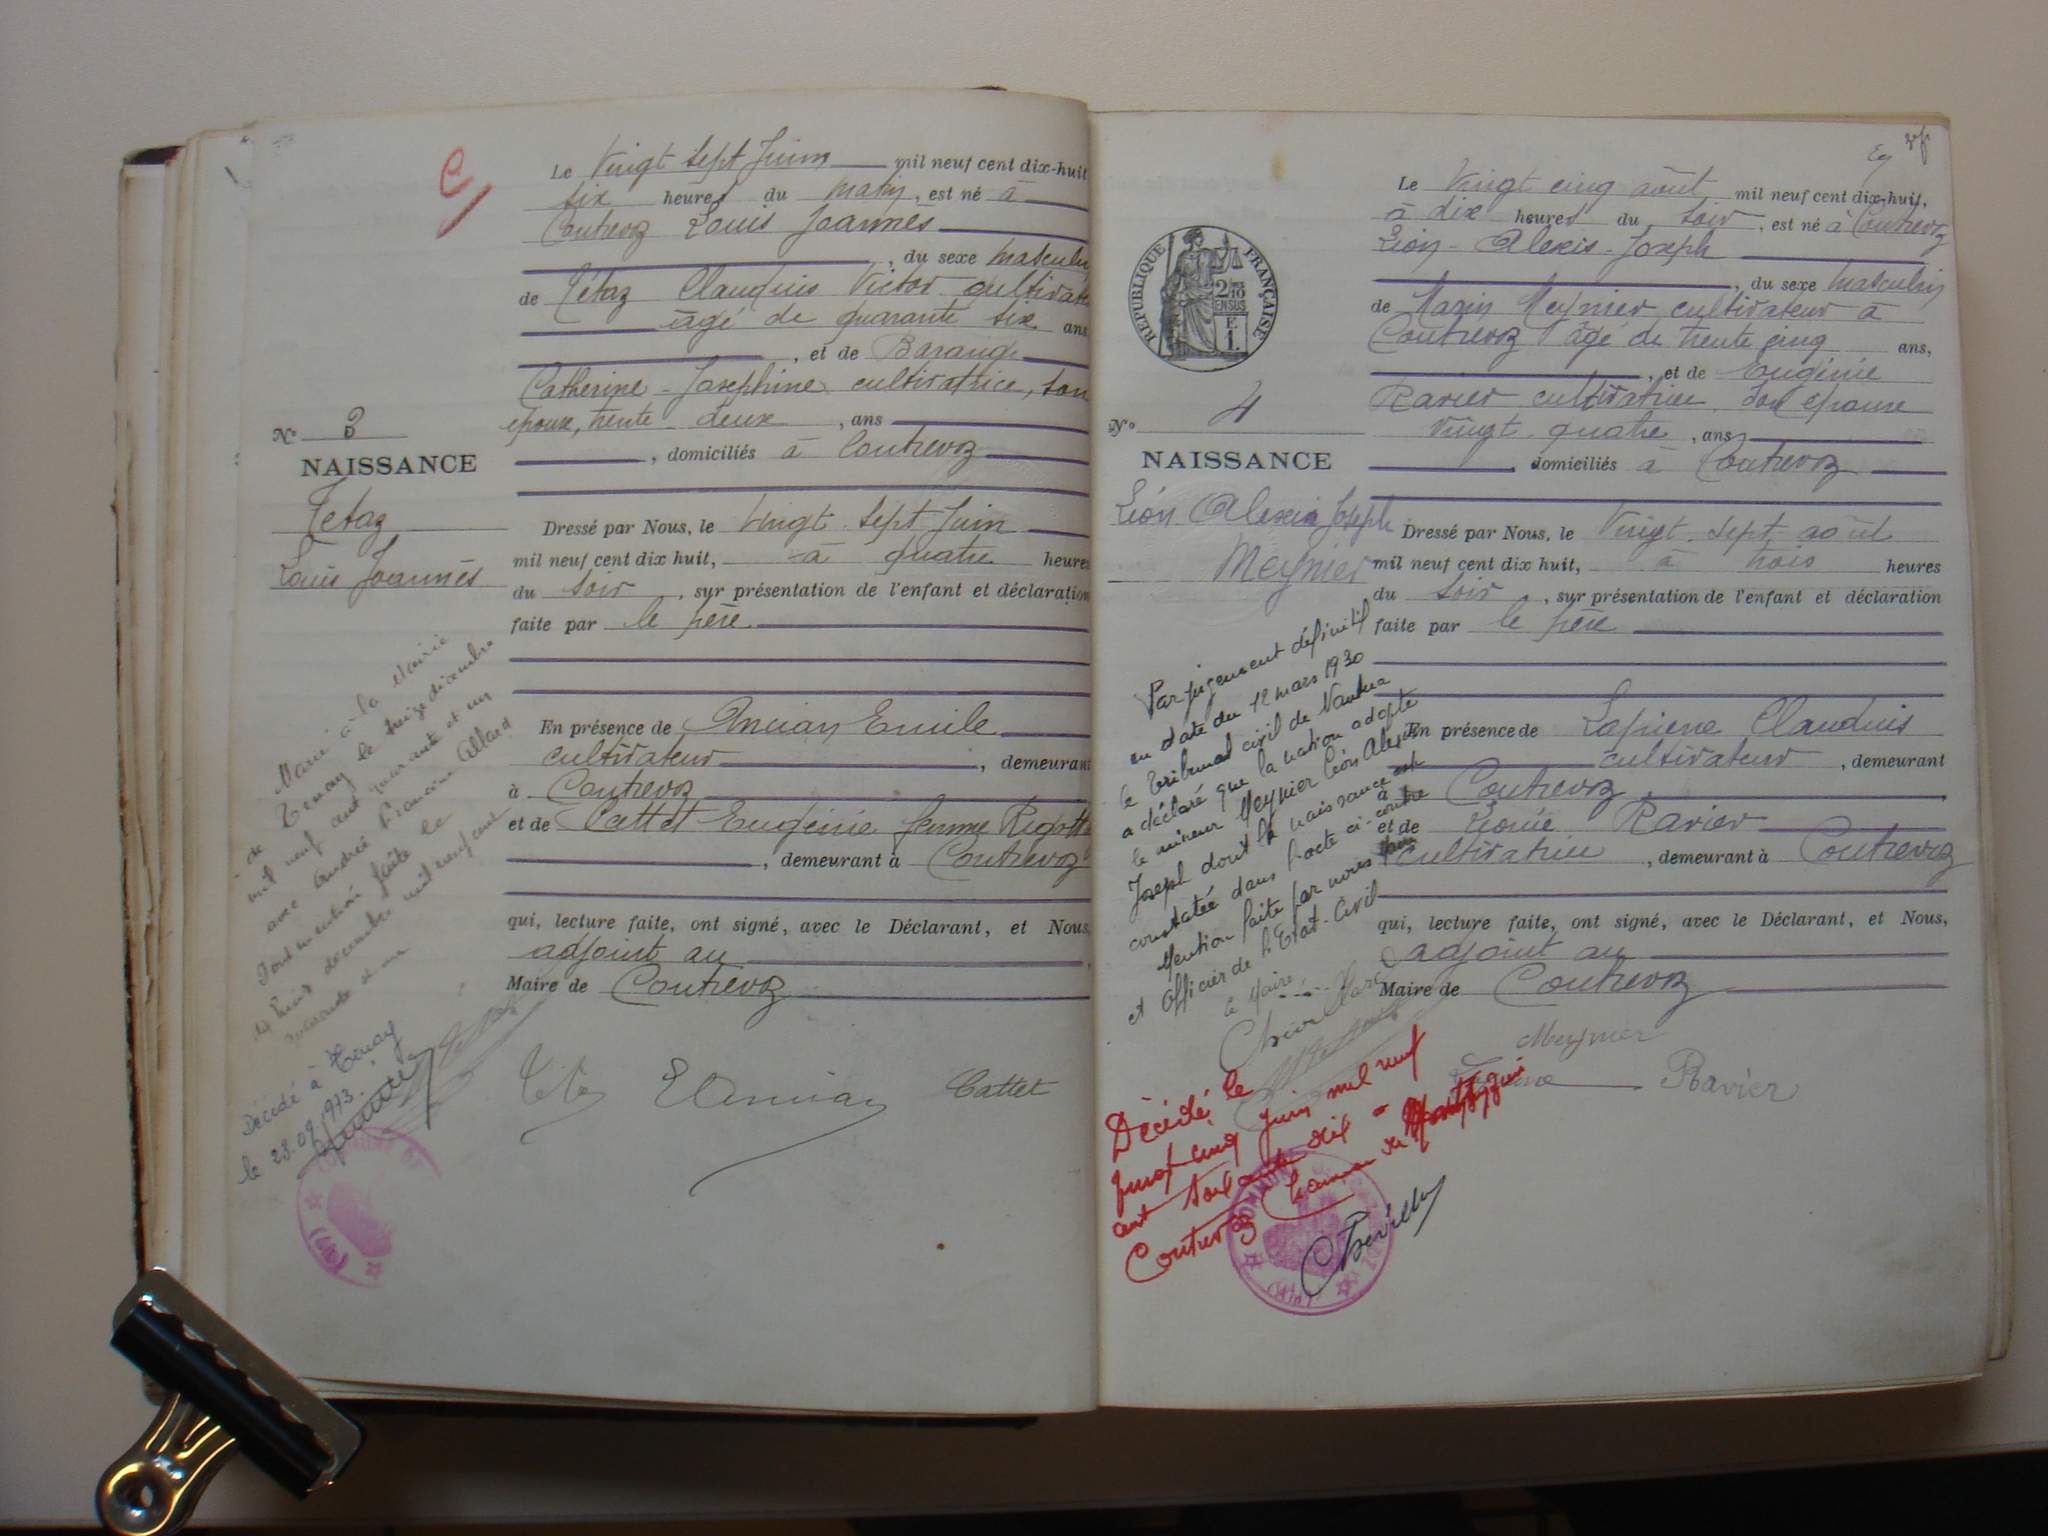 Le Vingt sept Juin mil neuf cent dix-huit
six heures du matin, est né à
Contrevoz Louis Joannès
, du sexe masculin
de Tétaz Claudius Victor cultivateur
âgé de quarante six ans
, et de
Catherine - Joséphine cultivatrice, son
épouse, trente deux, ans
, domiciliés à Contrevoz
N° 3
NAISSANCE
Tetaz
Louis Joannès
Dressé par Nous, le Vingt sept Juin
mil neuf cent dix huit, à quatre heures
du soir, sur présentation de l'enfant et déclaration
faite par le père
En présence de Ancian Emile
cultivateur, demeurant
à Contrevoz
et de Cattet Eugénie femme
, demeurant à Contrevoz
qui, lecture faite, ont signé, avec le Déclarant, et Nous,
adjoint au
Maire de Contrevoz
Marié à la Mairie
de Tenay le treize décembre
mil neuf cent quarante et un
avec Andrée Francine Allard
mention faite le
décembre mil neuf cent
quarante et un
Décédé à Tenay
le 23.09.1973.
E Ancian Cattet
COMMUNE DE
(Ain)
Le Vingt cinq août mil neuf cent dix-huit,
à dix heures du soir, est né à Contrevoz
Léon - Alexis - Joseph
, du sexe masculin
de Marin Meynier cultivateur à
Contrevoz âgé de trente cinq ans,
, et de Eugénie
Ravier cultivatrice son épouse
vingt quatre, ans
domiciliés à Contrevoz
REPUBLIQUE FRANÇAISE
2/10 EN SUS
F. 1.
N° 4
NAISSANCE
Léon Alexis Joseph
Meynier
Dressé par Nous, le Vingt sept août
mil neuf cent dix huit, à trois heures
du soir, sur présentation de l'enfant et déclaration
faite par le père
En présence de Lapierre Claudius
cultivateur, demeurant
à Contrevoz
et de Léonie Ravier
cultivatrice, demeurant à Contrevoz
qui, lecture faite, ont signé, avec le Déclarant, et Nous,
adjoint au
Maire de Contrevoz
Par jugement définitif
en date du 12 mars 1930
le tribunal civil de Nantua
a déclaré que la nation adopte
le mineur Meynier Léon Alexis
Joseph dont la naissance est
constatée dans l'acte ci-contre
Mention faite par nous Maire
et Officier de l'Etat-Civil
le Maire
Meynier
Ravier
Décédé le
cinq Juin mil neuf
cent soixante dix à
Contrevoz hameau de
COMMUNE
(Ain)